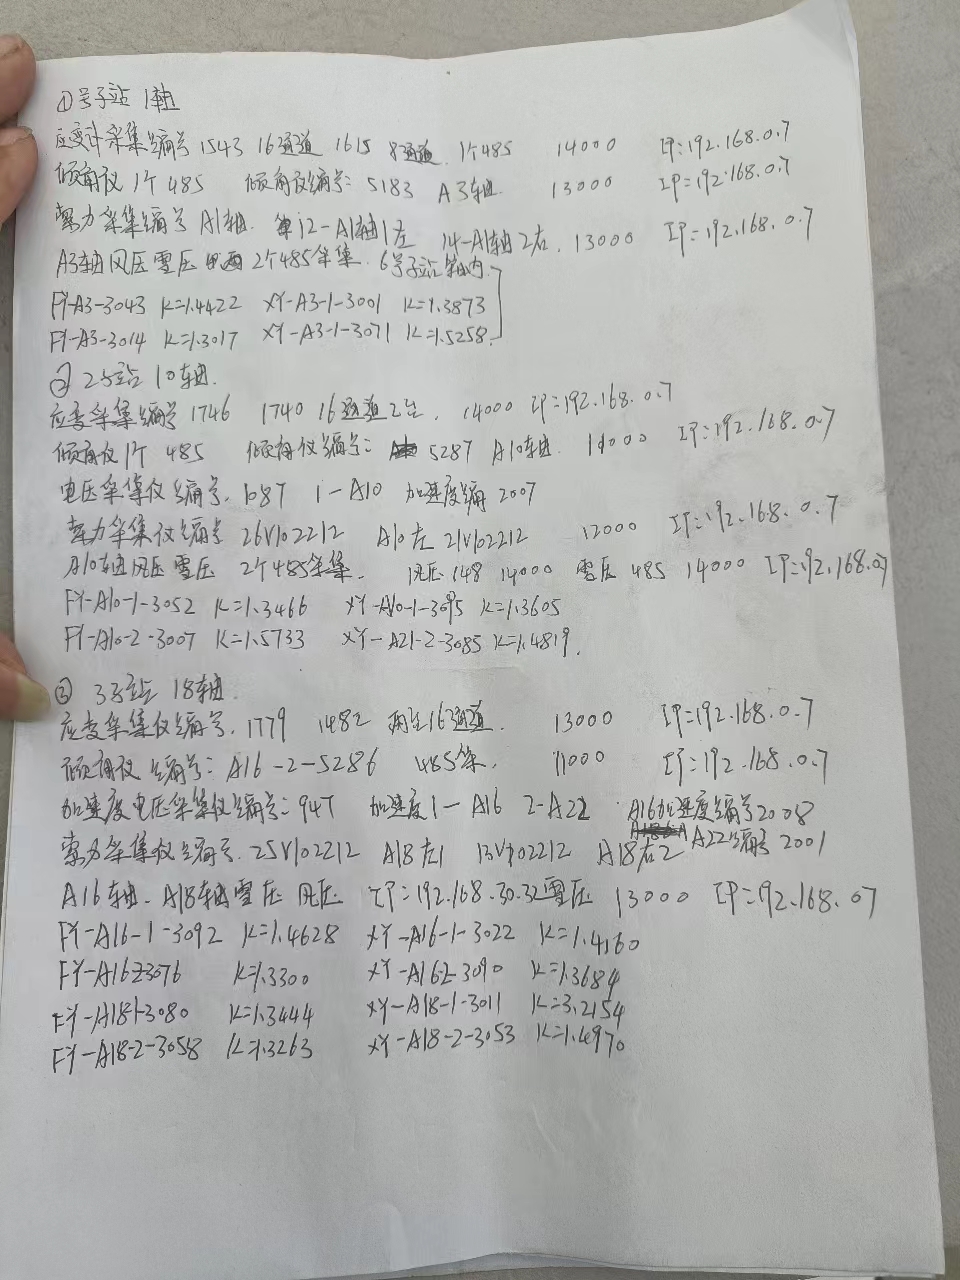 ①号子站 1轴
应变计采集编号 1543 16通道 1615 8通道. 1个485 14000 IP:192.168.0.7
倾角仪 1个485 倾角仪编号: 5183 A3轴. 13000 IP=192.168.0.7
索力采集编号 A1轴. 12-A1轴1左 14-A1轴2右. 13000 IP=192.168.0.7
A3轴风压雪压 2个485采集. 6号子站箱内.
FY-A3-3043 K=1.4422 XY-A3-1-3001 K=1.3873
FY-A3-3014 K=1.3017 XY-A3-1-3071 K=1.5258.
② 2子站 10轴.
应变采集编号 1746 1740 16通道2台. 14000 IP=192.168.0.7
倾角仪1个 485 倾角仪编号: 5287 A10轴. 11000 IP=192.168.0.7
电压采集仪编号. 1087 1-A10 加速度编 2007
索力采集仪编号 26V102212 A10左 21V102212 12000 IP=192.168.0.7
A10轴风压雪压 2个485采集. 风压148 14000 雪压 485 14000 IP=192.168.0.7
FY-A10-1-3052 K=1.3466 XY-A10-1-3095 K=1.3605
FY-A10-2-3007 K=1.5733 XY-A21-2-3085 K=1.4819.
③ 3子站 18轴.
应变采集仪编号. 1779 1482 两台16通道. 13000 IP=192.168.0.7
倾角仪编号: A16-2-5286 485采. 11000 IP=192.168.0.7
加速度电压采集仪编号: 947 加速度1-A16 2-A22 A16加速度编号2008
A22编号 2001
索力采集仪编号. 25V102212 A18左1 13V102212 A18右2
A16轴. A18轴雪压 风压 IP=192.168.30.32雪压 13000 IP=192.168.07
FY-A16-1-3092 K=1.4628 XY-A16-1-3022 K=1.4160
FY-A16-2-3076 K=1.3300 XY-A16-2-3090 K=1.3684
FY-A18-1-3080 K=1.3444 XY-A18-1-3011 K=3.2154
FY-A18-2-3058 K=1.3263 XY-A18-2-3053 K=1.4970